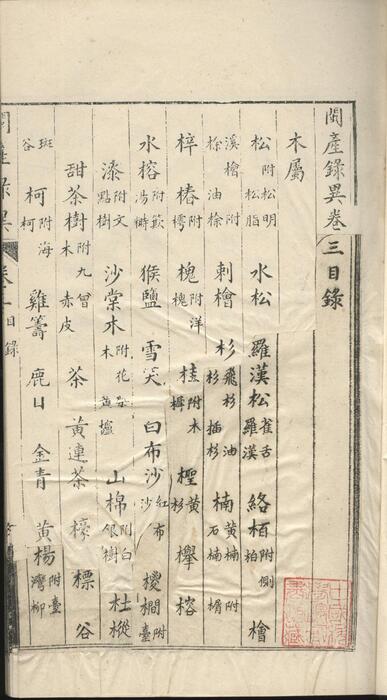 閩產錄異卷三目錄
木屬
松附松明松脂 水松 羅漢松雀舌羅漢 絡栢附側柏 檜
溪檜附油棯 刺檜 杉飛杉油杉插杉 楠黃楠附石楠楣
梓 椿附樗 槐附洋槐 桂附木樨 檉黃杉 櫸 榕
水榕附 猴鹽 雪 白布沙紅布沙
漆附文點樹 沙棠木附花梨木黃壚 山棉附白銀樹 杜樅
甜茶樹附九曾木赤皮 茶 黃連茶 櫄 標 谷
斑谷 柯附海柯 雞籌 鹿目 金青 黃楊附臺灣柳
閩產錄異 卷三 目錄